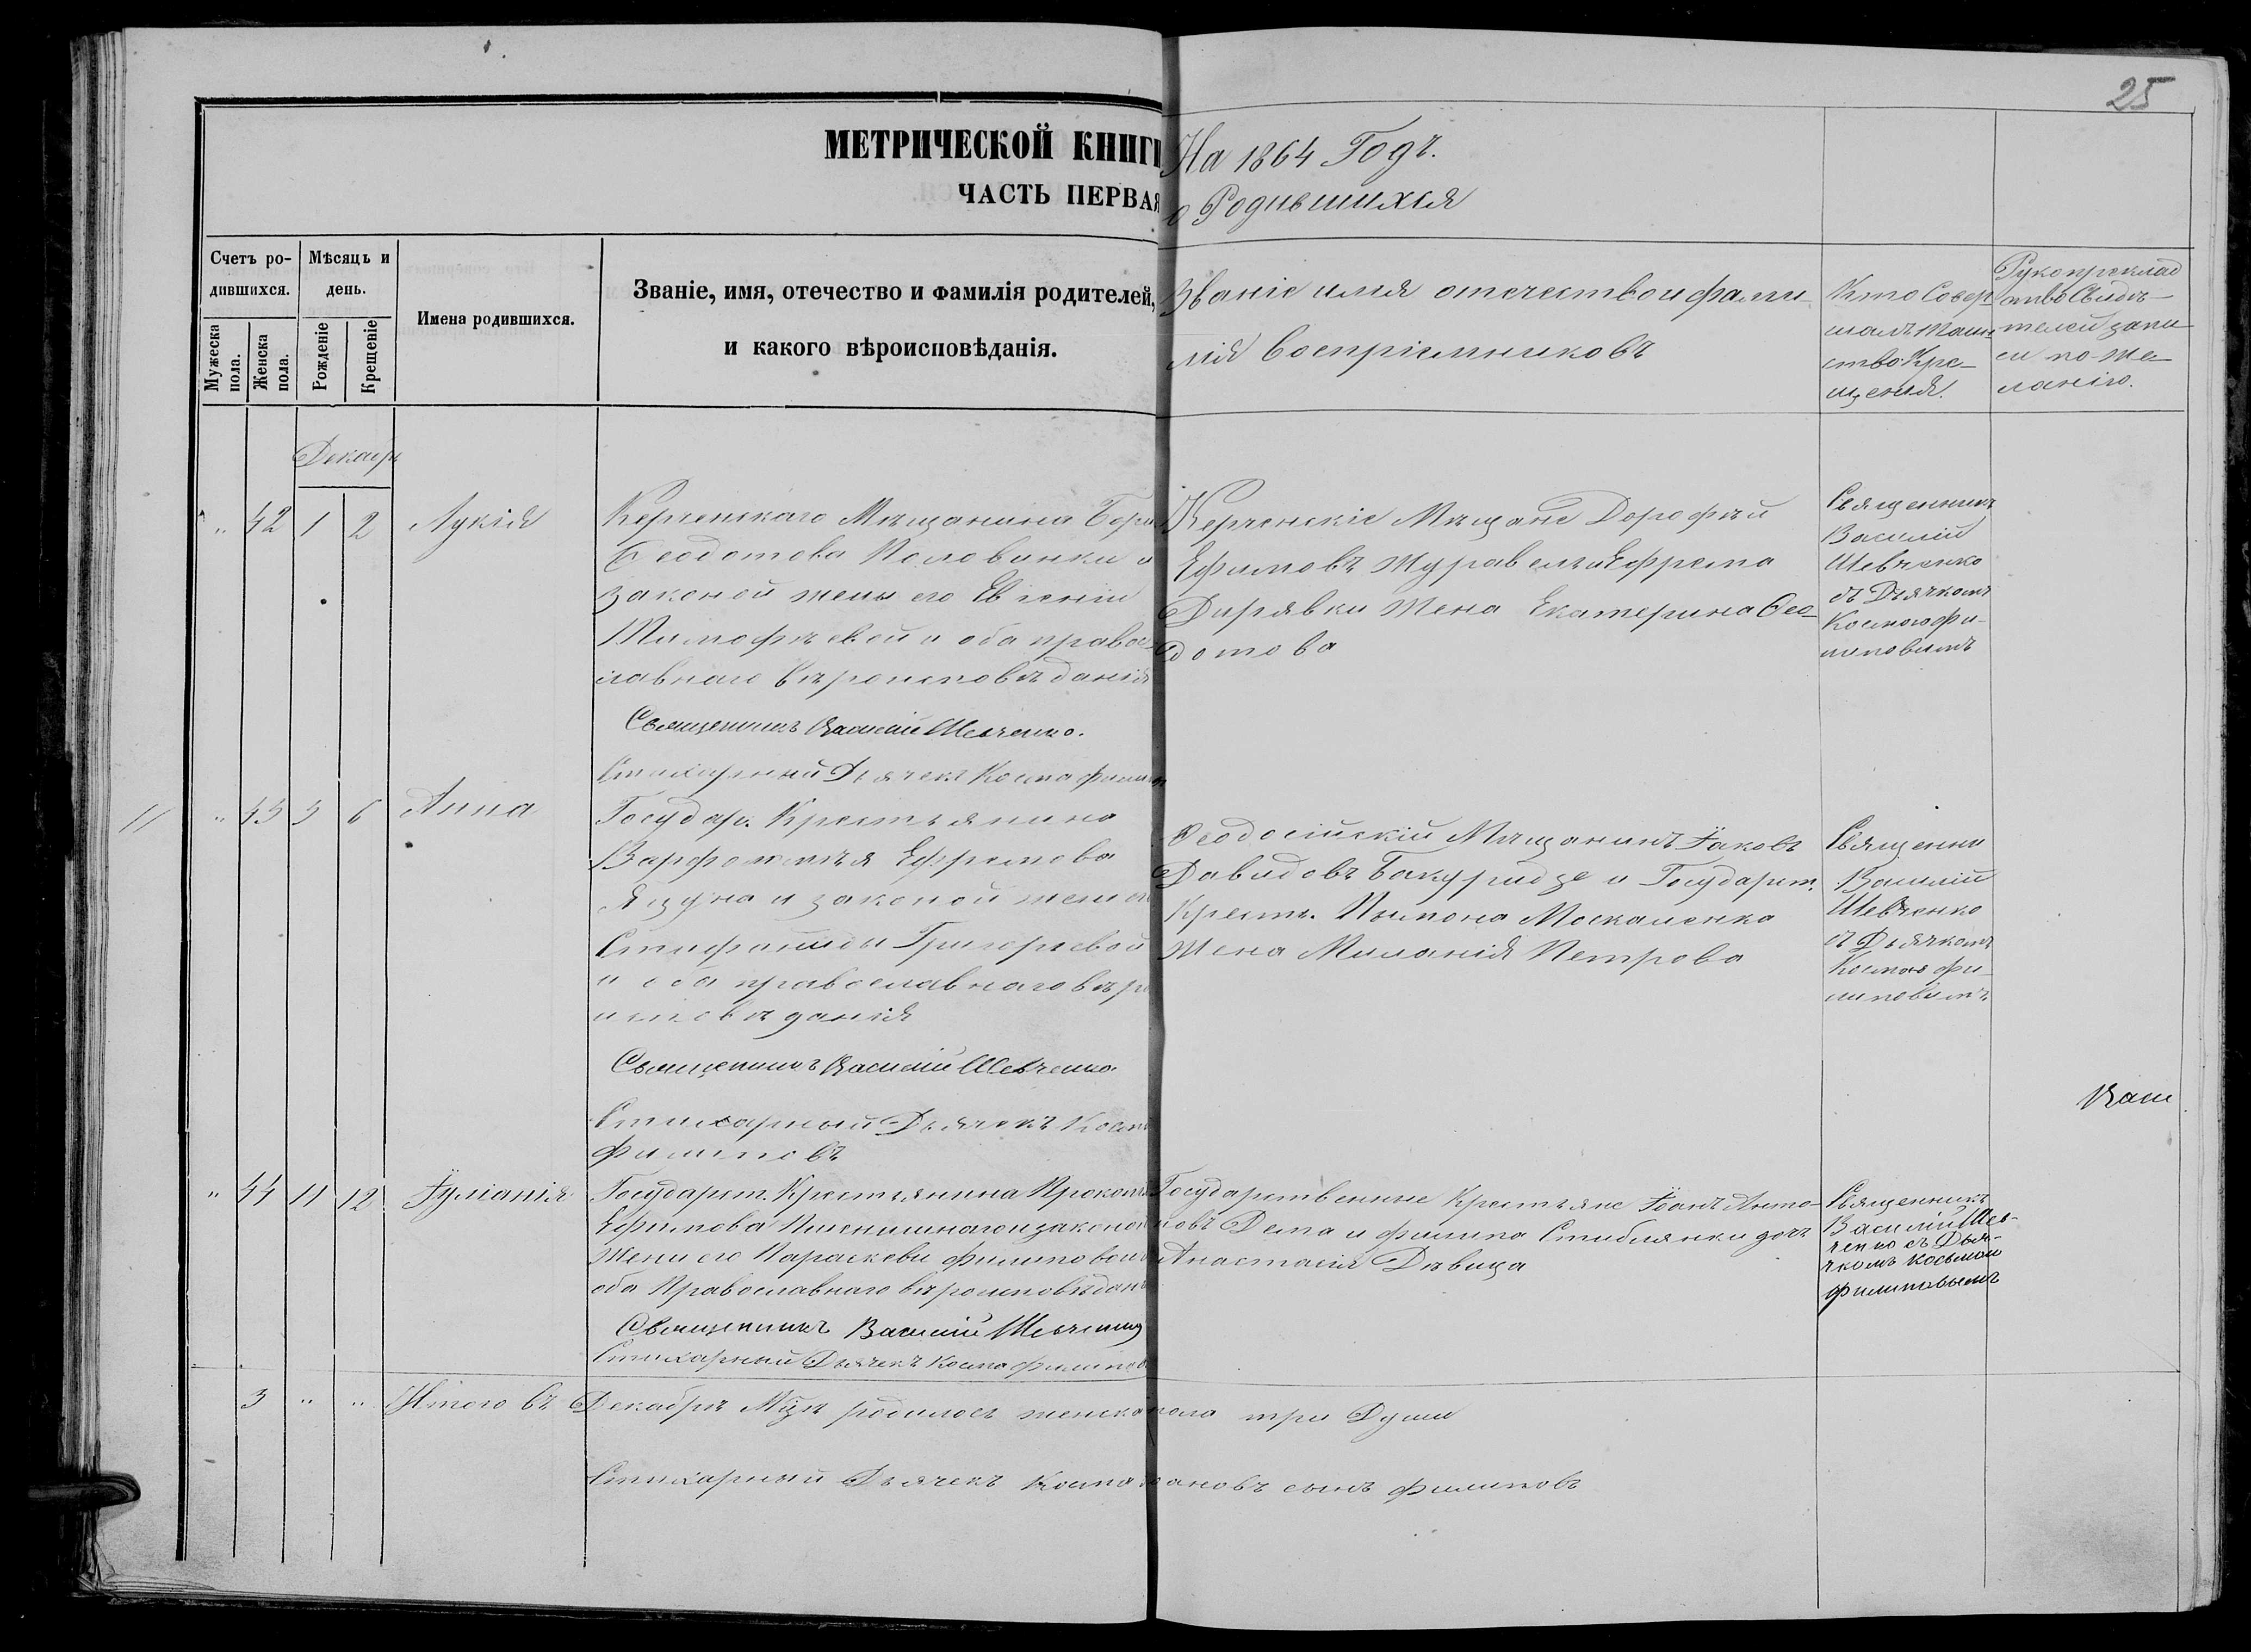 25
МЕТРИЧЕСКОЙ КНИГИ На 1864 Годъ.
ЧАСТЬ ПЕРВАЯ о Родившихся
Счетъ ро-
дившихся.
Мужеска
пола.
Женска
пола.
Мѣсяцъ и
день.
Рожденіе
Крещеніе
Имена родившихся.
Званіе, имя, отечество и фамилія родителей,
и какого вѣроисповѣданія.
Званіе имя отечество и фами
лія Воспріемниковъ
Кто Совер-
шалъ Таин
ство Кре-
щенія.
Рукоприклад
ство Свидѣ-
телей запи
си по же-
ланію.
Декабр
" 42 1 2 Лукія
Керченскаго Мѣщанина
Феодотова Половинки и
законой жены его Евгеніи
Тимофѣевой и оба правос
лавнаго вѣроисповѣданія
Священникъ Василій Шевченко.
Стихарный Дьячекъ Косма Филип
Керченскіе Мѣщане Дорофѣй
Ефимовъ Журавель и Ефрема
Дирявки Жена Екатерина Фео-
дотова
Священникъ
Василій
Шевченко
съ Дьячкомъ
Космою Фи-
липовымъ
11
" 43 5 6 Анна
Государ. Крестьянина
Варфоломѣя Ефремова
Яцуна и законой жены
Стефаниды Григорьевой
и оба православнаго вѣро
исповѣданія
Священникъ Василій Шевченко.
Стихарный Дьячекъ Косма
Филиповъ
Феодосійскій Мѣщанинъ Іаковъ
Давидовъ Бакуридзе и Государст.
Крест. Москаленка
Жена Миланія Петрова
Священни
Василій
Шевченко
съ Дьячкомъ
Космою Фи-
липовымъ
Васи
" 44 11 12 Іуліанія
Государст. Крестьянина Прокопія
Ефимова Пшенишнаго и законой
Жены его Параскевы Филиповой
оба Православнаго вѣроисповѣдан
Священникъ Василій Шевченко
Стихарный Дьячекъ Косма Филипов
Государственные Крестьяне Іоанъ Анто-
новъ Дема и Филипа Стиблянки дочь
Анастасія Дѣвица
Священникъ
Василій Шев-
ченко съ Дья-
чкомъ Косьмою
Филиповымъ
3 " " Итого въ Декабрѣ Мцѣ родилось женска пола три Души
Стихарный Дьячекъ Косма Івановъ сынъ Филиповъ